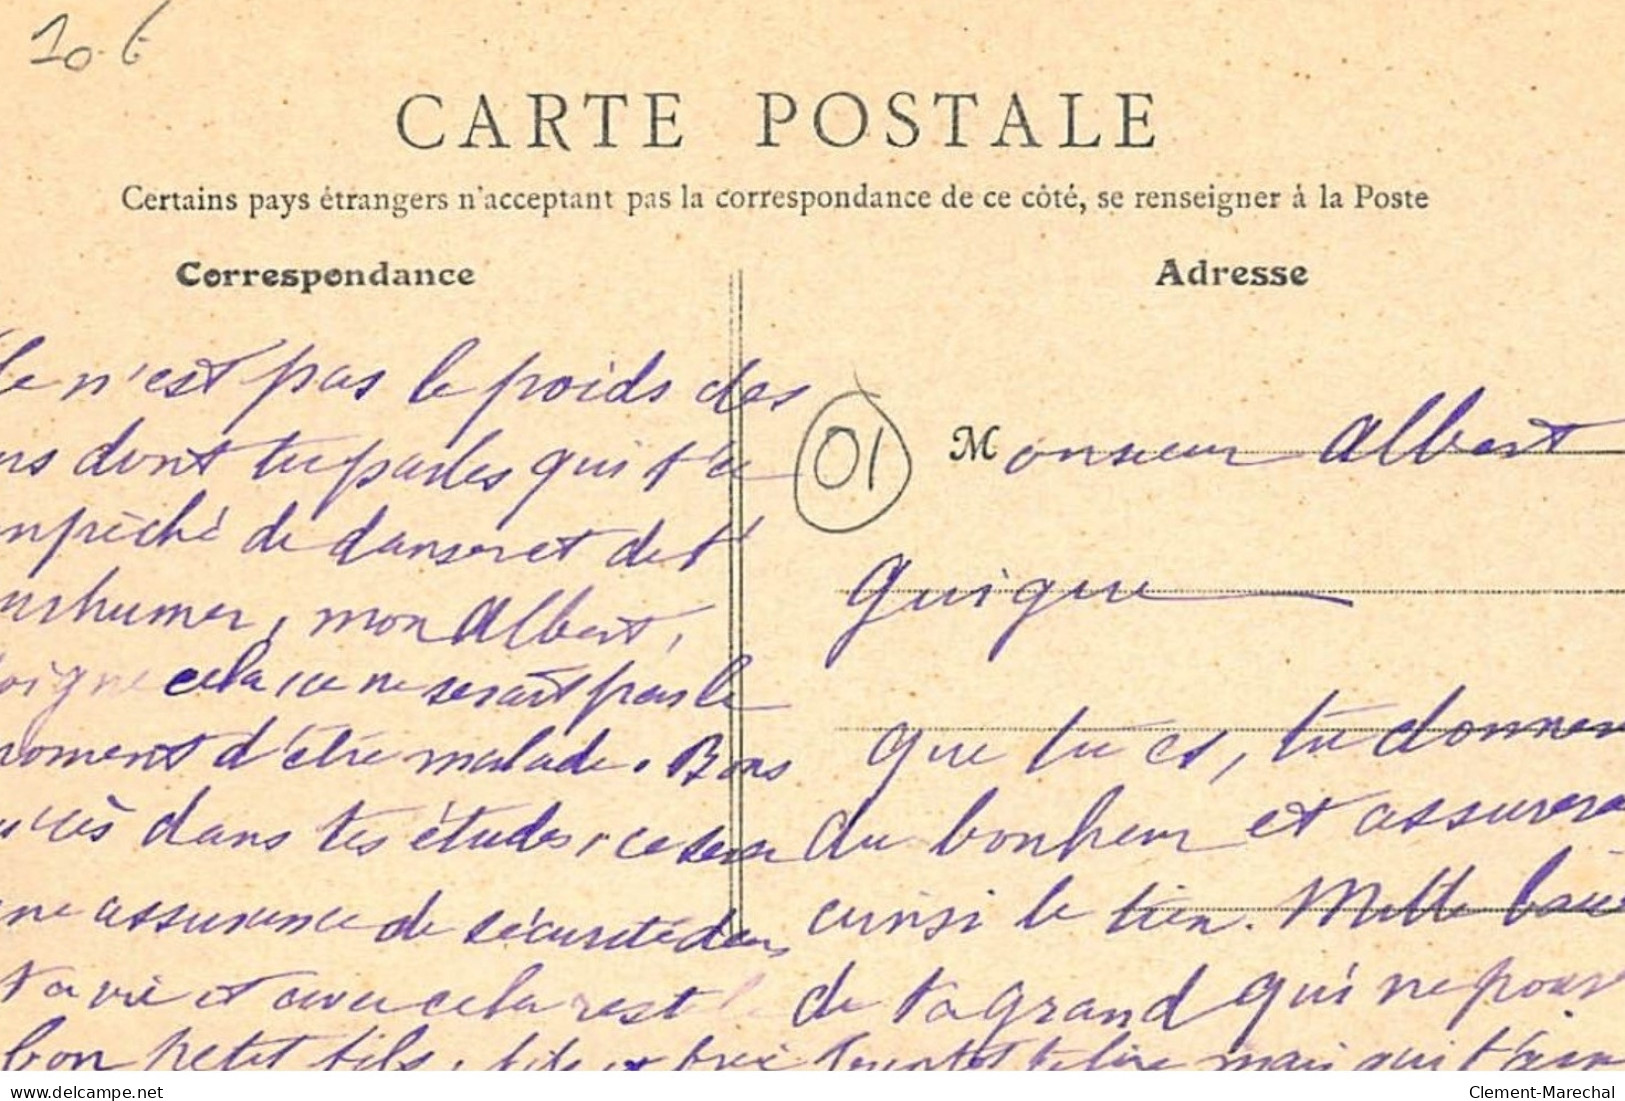 10 €
CARTE POSTALE
Certains pays étrangers n'acceptant pas la correspondance de ce côté, se renseigner à la Poste
Correspondance
Adresse
n'est pas le poids des
dont tu parles qui t'a
mpêché de danser et de t'
rhumer, mon Albert,
soigne cela, ce ne serait pas le
moment d'être malade. Bons
uccès dans tes études, ce sera
ne assurance de sécurité dans
ta vie et avec cela rest
bon petit fils,
01
Monsieur Albert
Guigue
que tu es, tu donner
du bonheur et assurera
ainsi le tien. Mille bais
de ta grand qui ne pour
te lire mais qui t'aim
delcampe.net
Clement-Marechal